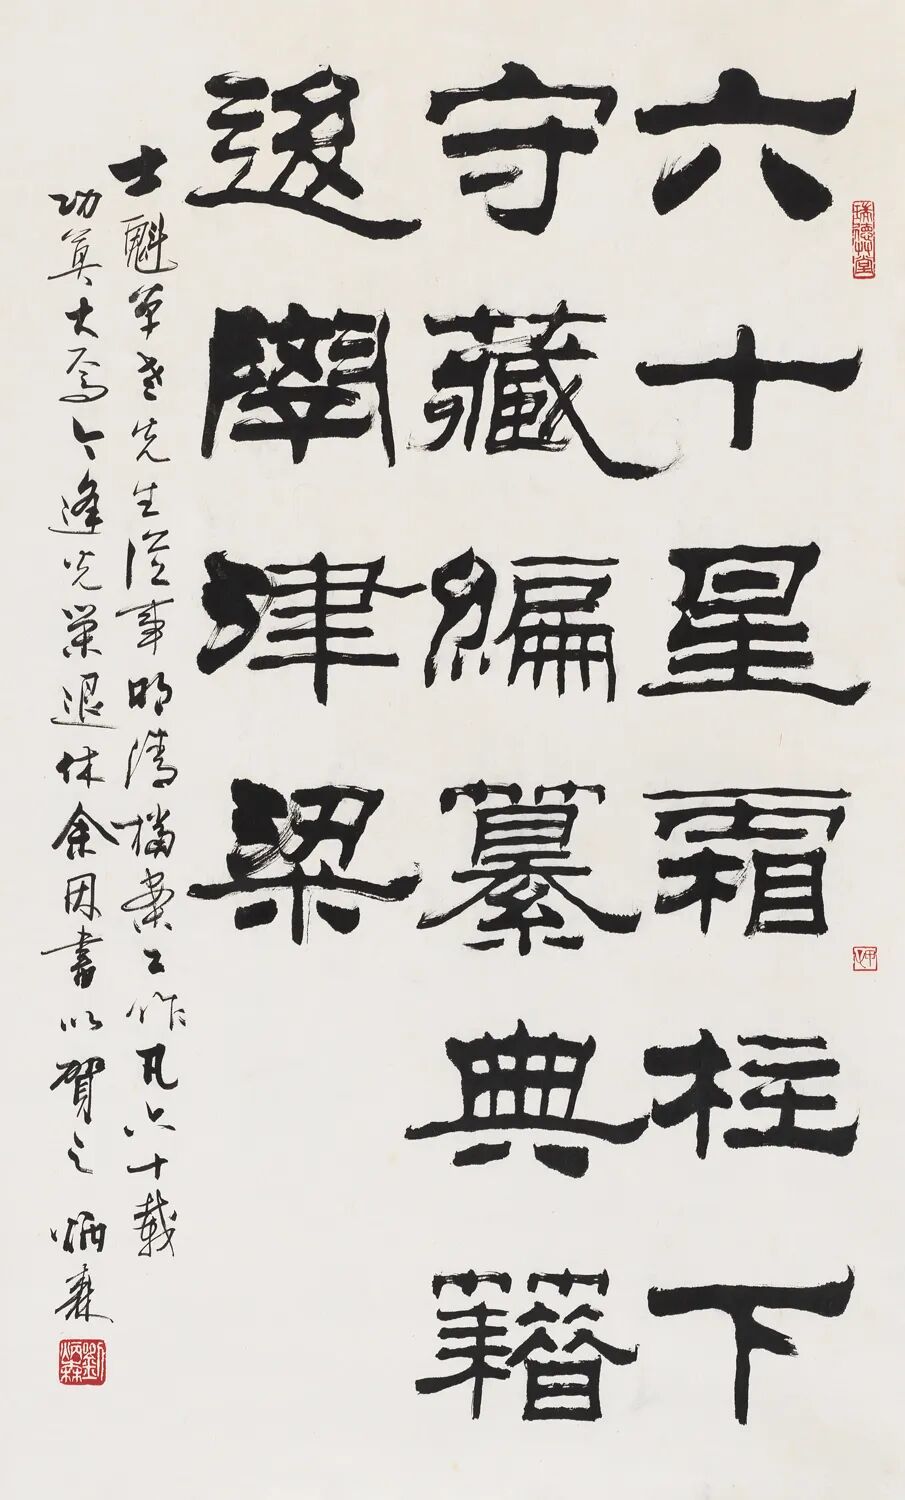 六十星霜柱下
守藏編纂典籍
後學津梁
士魁單老先生從事明清檔案工作凡六十載
功莫大焉今逢光榮退休余因書以賀之 炳森
劉炳森